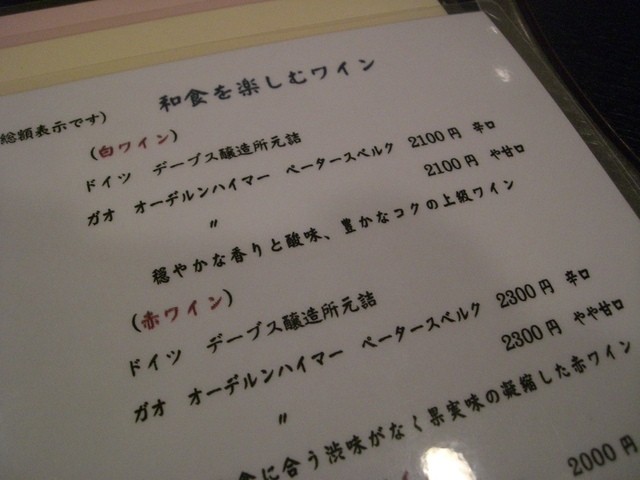 和食を楽しむワイン
総額表示です)
(白ワイン)
ドイツ デーブス醸造所元詰
ガオ オーデルンハイマー ペータースベルク 2100円 辛口
〃 2100円 や甘口
穏やかな香りと酸味、豊かなコクの上級ワイン
(赤ワイン)
ドイツ デーブス醸造所元詰
ガオ オーデルンハイマー ペータースベルク 2300円 辛口
〃 2300円 やや甘口
食に合う渋味がなく果実味の凝縮した赤ワイン
2000円